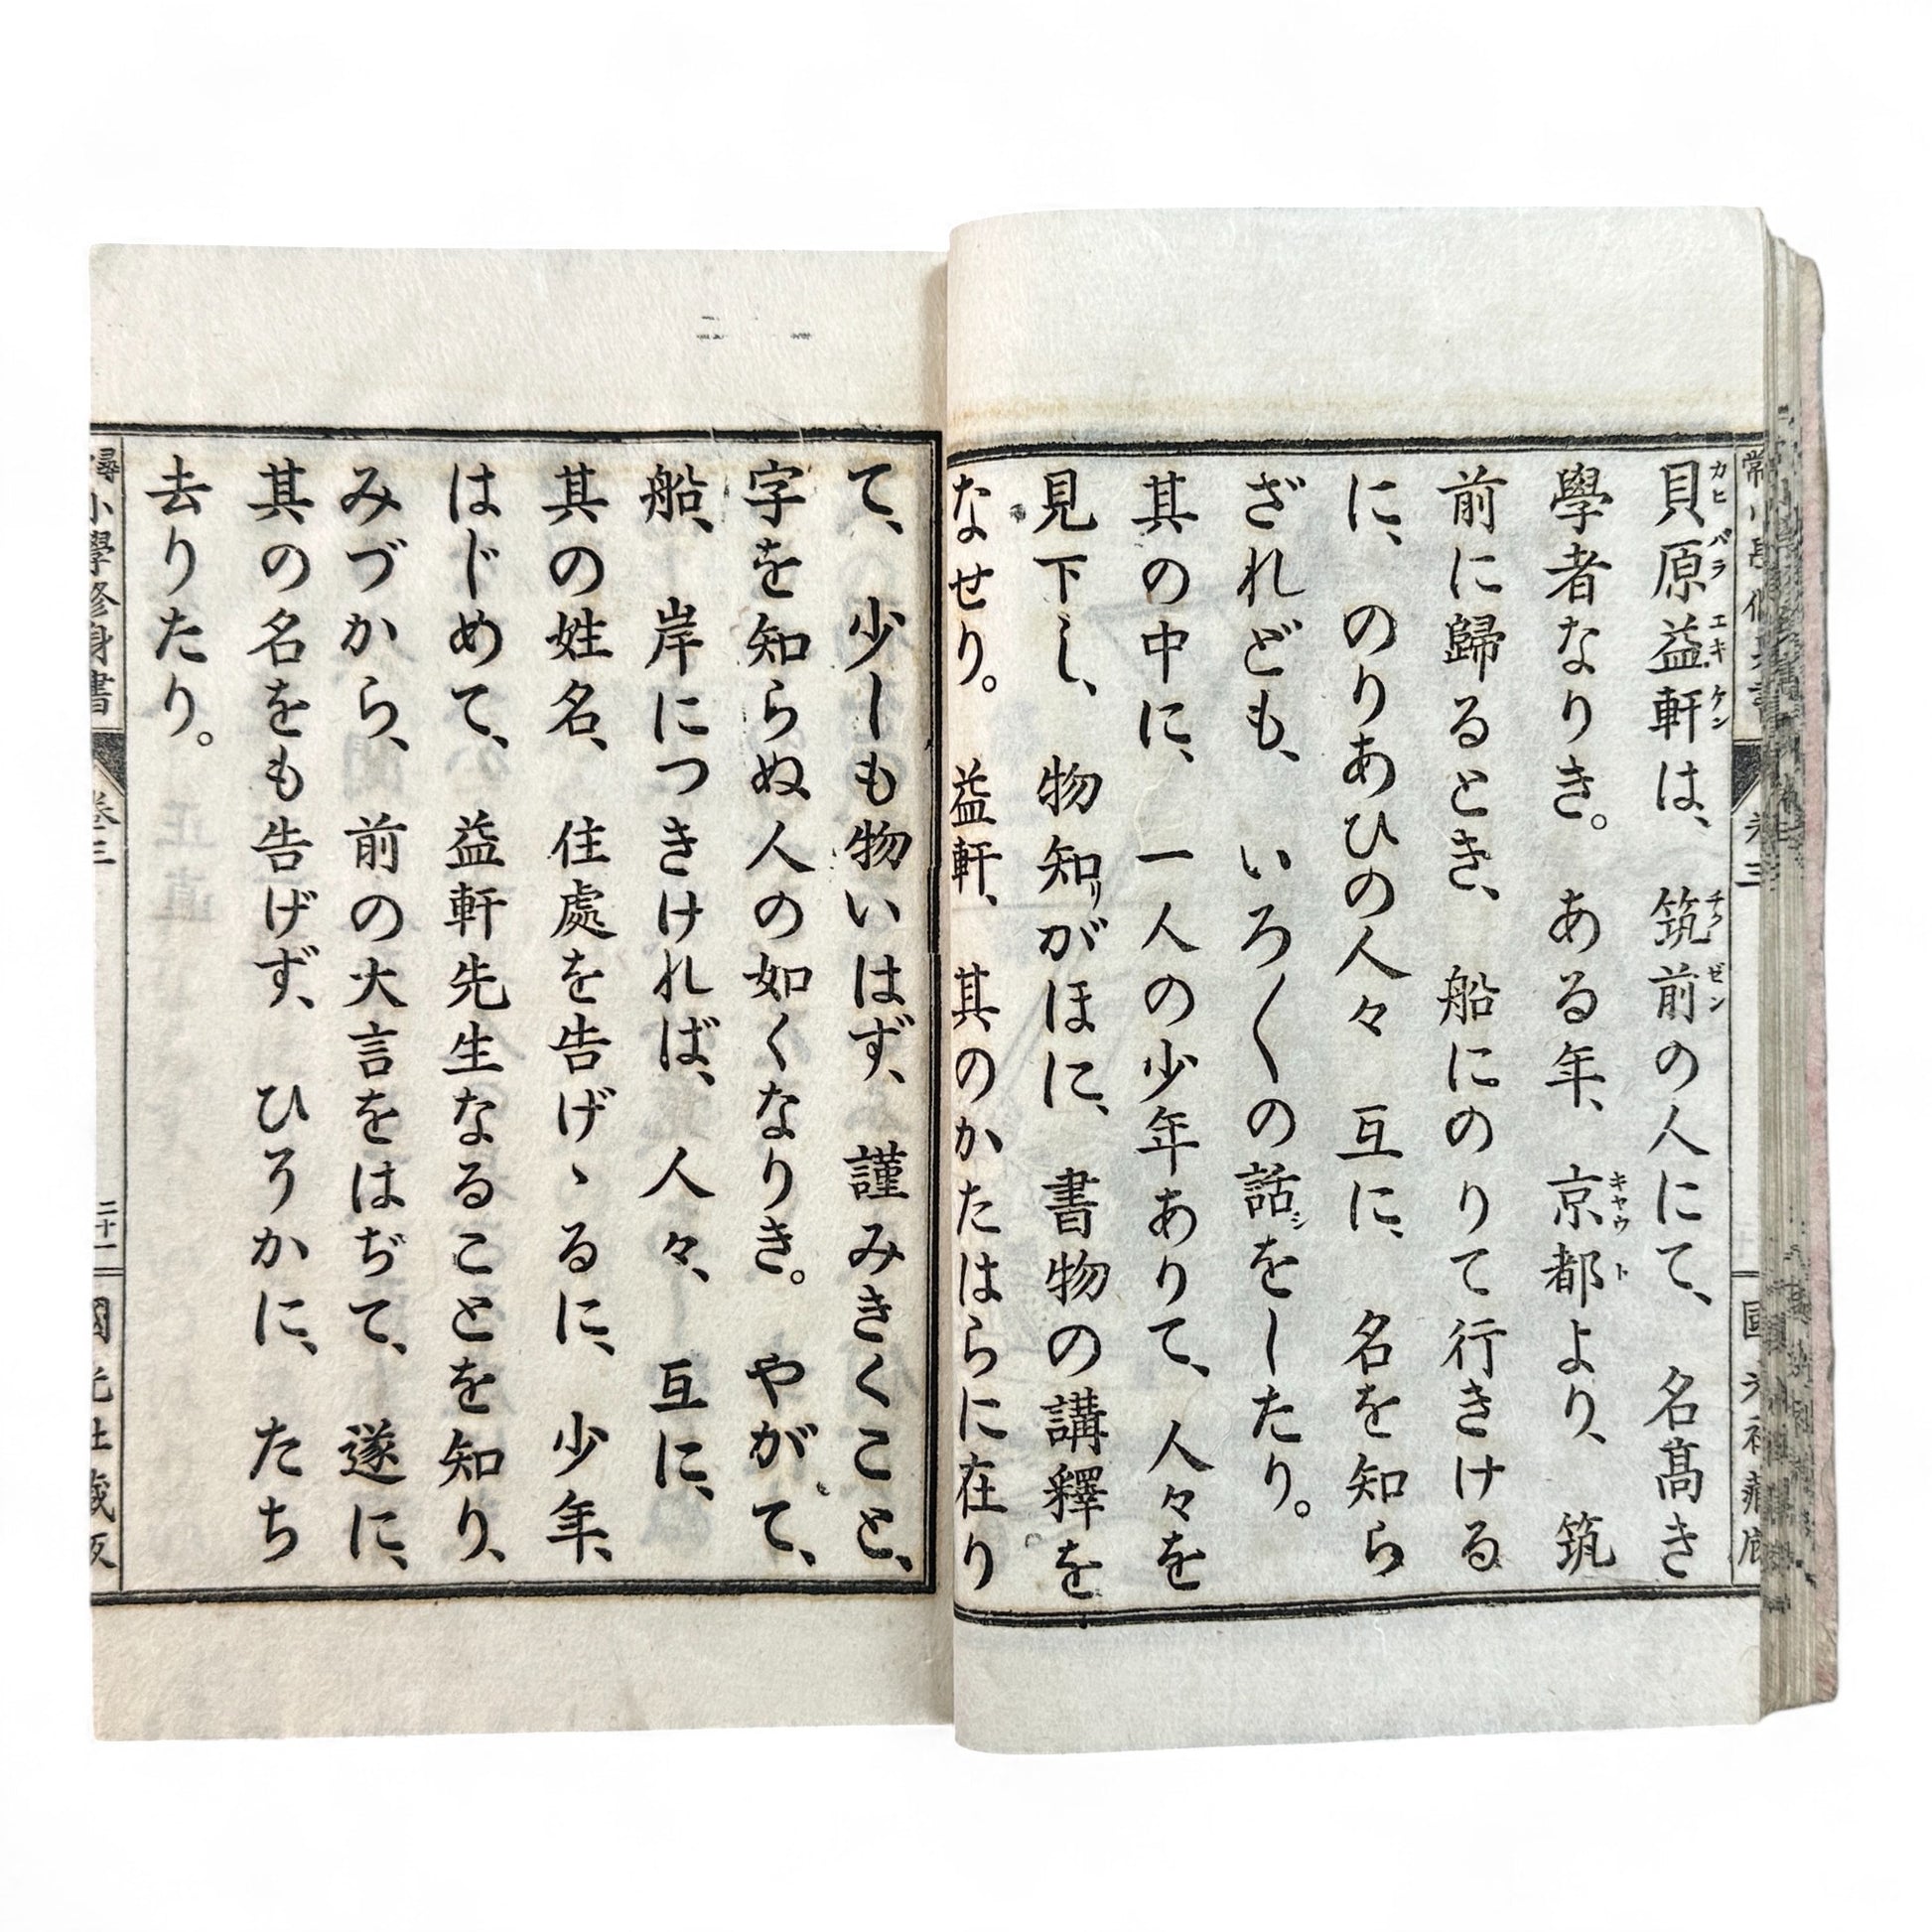 貝原益軒は、筑前の人にて、名髙き
學者なりき。ある年、京都より、筑
前に歸るとき、船にのりて行きける
に、のりあひの人々互に、名を知ら
ざれども、いろ〱の話をしたり。
其の中に、一人の少年ありて、人々を
見下し、物知りがほに、書物の講釋を
なせり。益軒、其のかたはらに在り
て、少しも物いはず、謹みきくこと、
字を知らぬ人の如くなりき。やがて、
船、岸につきければ、人々、互に、
其の姓名、住處を告げゝるに、少年、
はじめて、益軒先生なることを知り、
みづから、前の大言をはぢて、遂に、
其の名をも告げず、ひそかに、たち
去りたり。
尋 小學修身書 卷三 二十一 國光社藏版